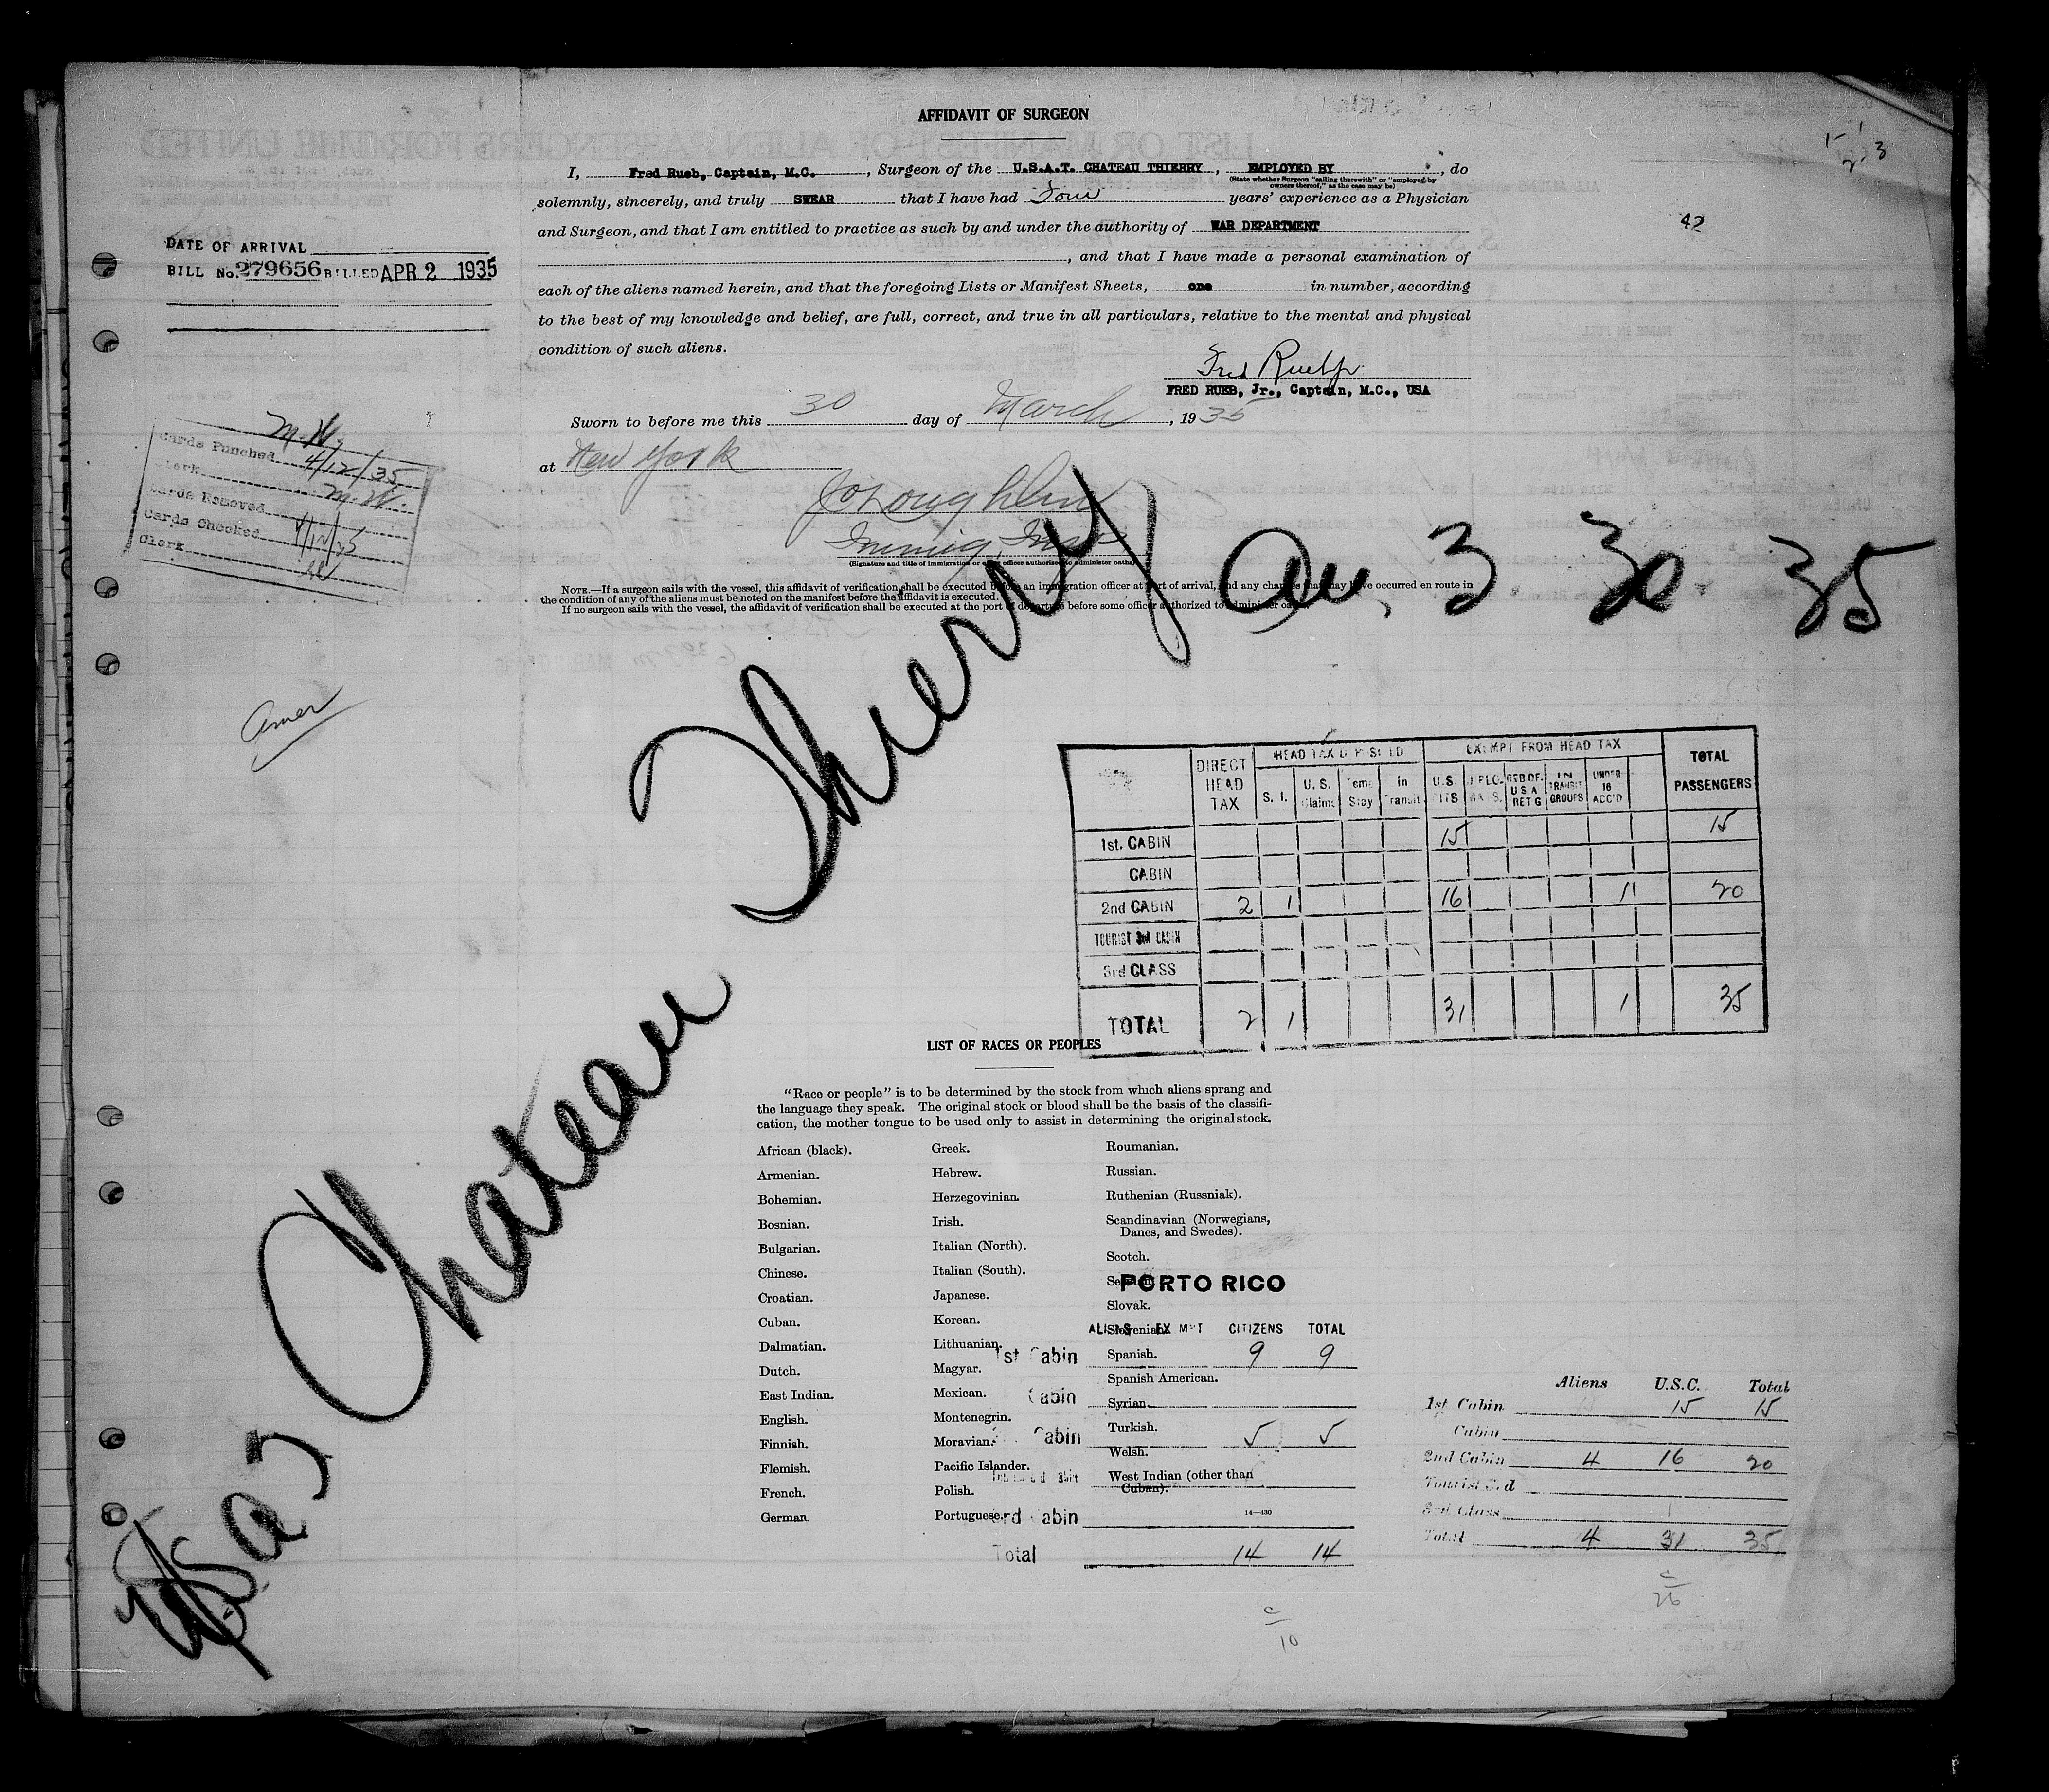 AFFIDAVIT OF SURGEON
I, Fred Rueb, Captain, M.C., Surgeon of the U.S.A.T. CHATEAU THIERRY, EMPLOYED BY, do
(State whether Surgeon "sailing therewith" or "employed by owners thereof," as the case may be)
solemnly, sincerely, and truly SWEAR that I have had Four years' experience as a Physician
and Surgeon, and that I am entitled to practice as such by and under the authority of WAR DEPARTMENT
, and that I have made a personal examination of
each of the aliens named herein, and that the foregoing Lists or Manifest Sheets, one in number, according
to the best of my knowledge and belief, are full, correct, and true in all particulars, relative to the mental and physical
condition of such aliens.
Fred Rueb Jr.
FRED RUEB, Jr., Captain, M.C., USA
Sworn to before me this 30 day of March, 1935
at New York
Immig. Insp
(Signature and title of immigration or other officer authorized to administer oaths)
NOTE.—If a surgeon sails with the vessel, this affidavit of verification shall be executed before an immigration officer at port of arrival, and any changes that may have occurred en route in
the condition of any of the aliens must be noted on the manifest before the affidavit is executed.
If no surgeon sails with the vessel, the affidavit of verification shall be executed at the port of departure before some officer authorized to administer oaths.
42
DATE OF ARRIVAL
BILL No. 279656 BILLED APR 2 1935
M.W.
Cards Punched 4/12/35
Clerk M.W.
Cards Removed
Cards Checked 4/12/35
Clerk
Amer
Chateau Thierry arr. 3 30 35
DIRECT HEAD TAX HEAD TAX DEPOSITED EXEMPT FROM HEAD TAX TOTAL PASSENGERS
S. I. U. S. Claims Tem. Stay In Transit U.S. CITS DIPLOMATS. RES OF U S A RET G IN TRANSIT GROUPS UNDER 16 ACC'D
1st. CABIN 15 15
CABIN
2nd CABIN 2 1 16 1 20
TOURIST 3rd CABIN
3rd CLASS
TOTAL 2 1 31 1 35
LIST OF RACES OR PEOPLES
"Race or people" is to be determined by the stock from which aliens sprang and
the language they speak. The original stock or blood shall be the basis of the classifi-
cation, the mother tongue to be used only to assist in determining the original stock.
African (black).
Armenian.
Bohemian.
Bosnian.
Bulgarian.
Chinese.
Croatian.
Cuban.
Dalmatian.
Dutch.
East Indian.
English.
Finnish.
Flemish.
French.
German
Greek.
Hebrew.
Herzegovinian.
Irish.
Italian (North).
Italian (South).
Japanese.
Korean.
Lithuanian.
Magyar.
Mexican.
Montenegrin.
Moravian.
Pacific Islander.
Polish.
Portuguese.
Roumanian.
Russian.
Ruthenian (Russniak).
Scandinavian (Norwegians,
Danes, and Swedes).
Scotch.
Servian.
Slovak.
Slovenian.
Spanish.
Spanish American.
Syrian.
Turkish.
Welsh.
West Indian (other than
Cuban).
14—430
PORTO RICO
ALIENS EXEMPT CITIZENS TOTAL
1st Cabin 9 9
Cabin
Cabin 5 5
3rd Cabin
Total 14 14
Aliens U.S.C. Total
1st Cabin 15 15
Cabin
2nd Cabin 4 16 20
Tourist 3rd
3rd Class
Total 4 31 35
c
10
c
26